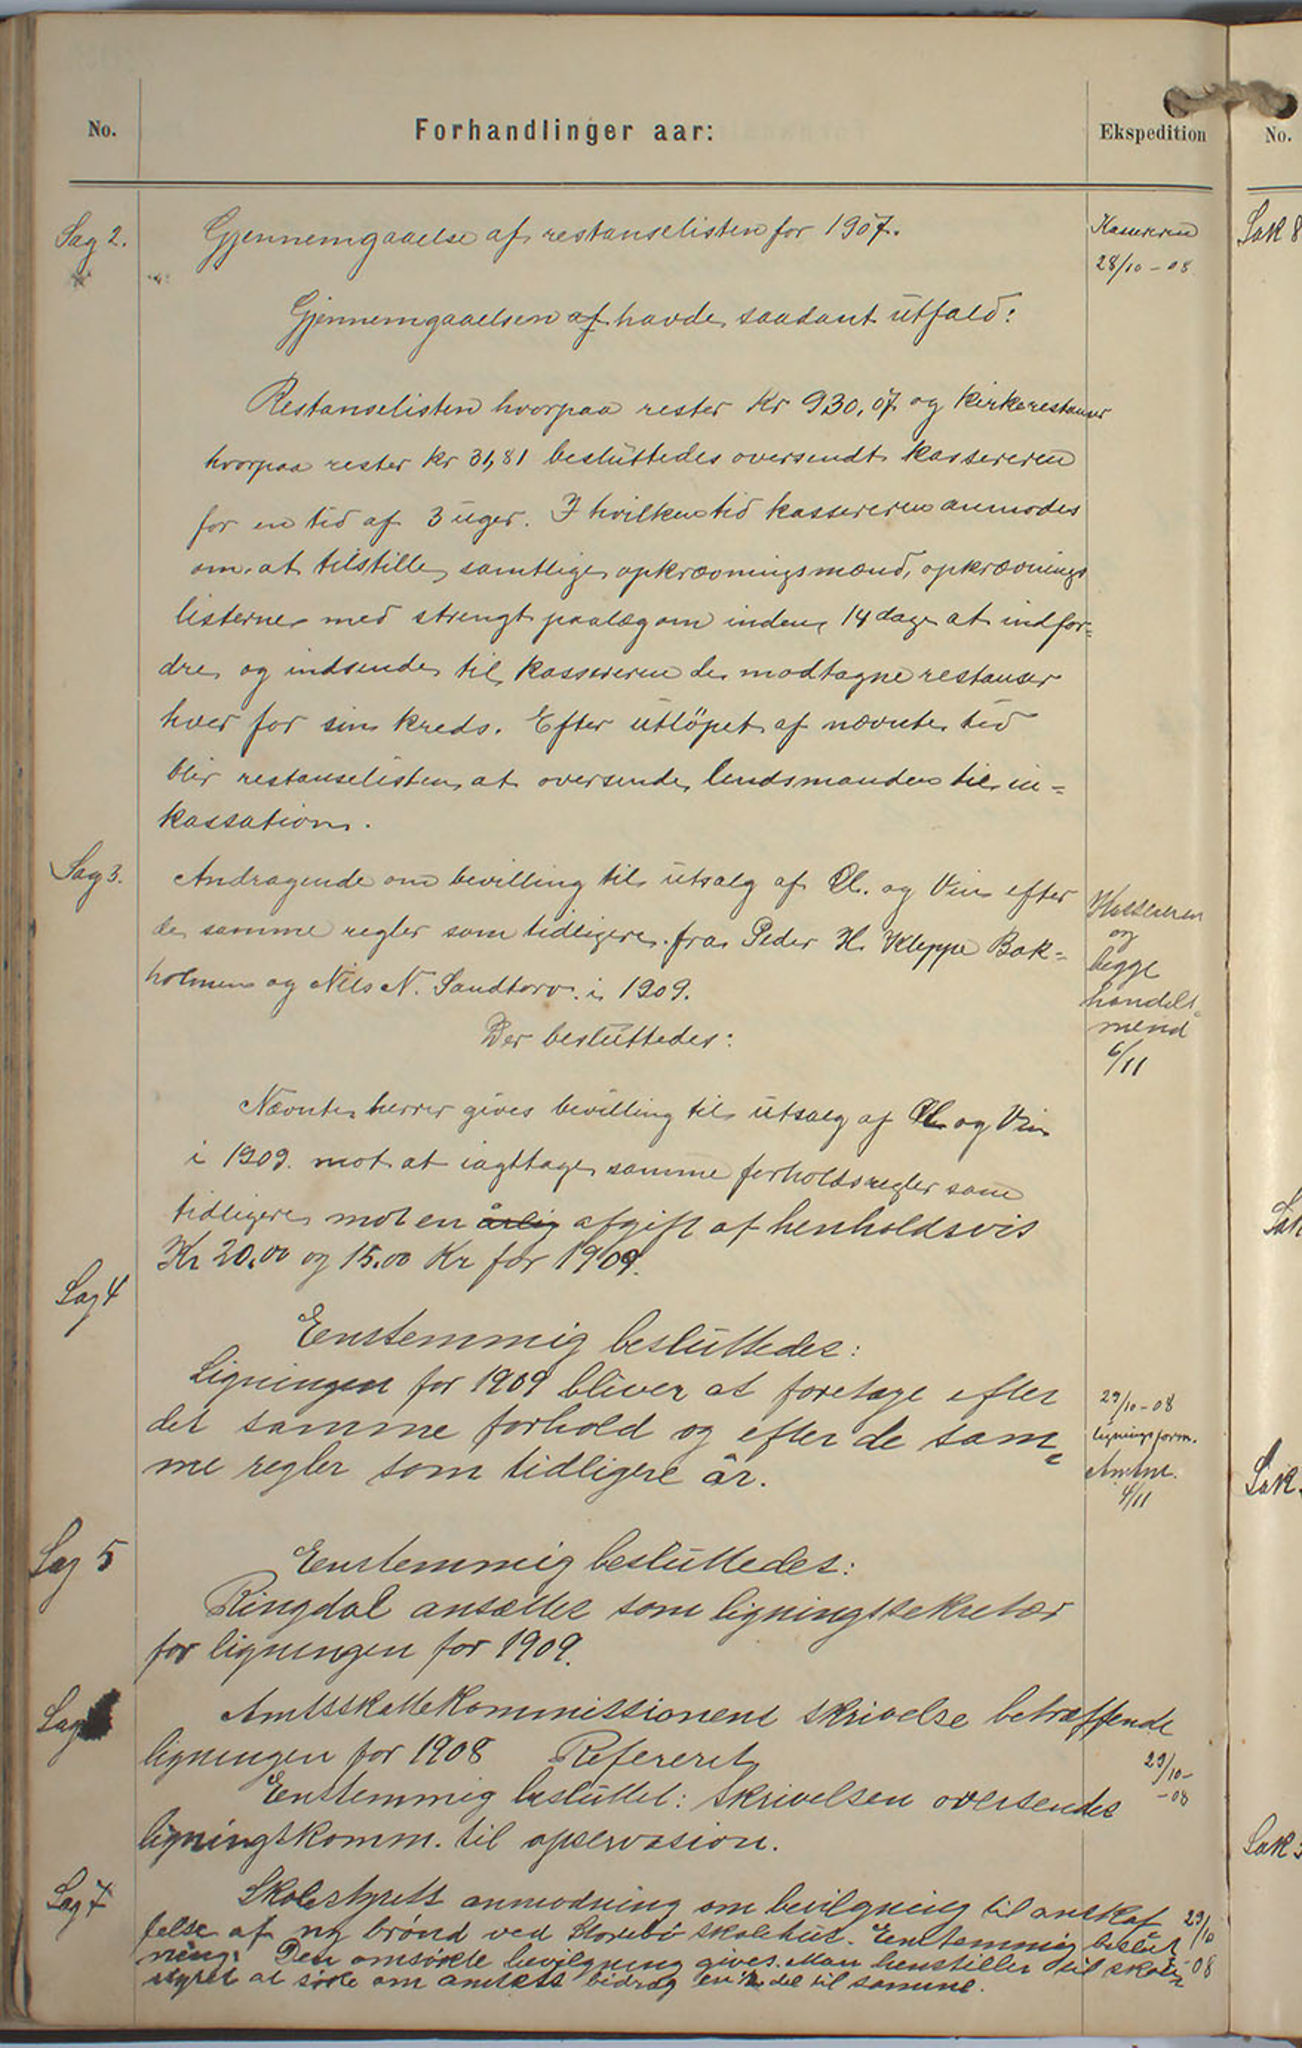 No.
Forhandlinger aar:
Ekspedition
No.
Sag 2.
Gjennemgaaelse af restanselisten for 1907.
Kassereren
28/10-08
Sak 8
Gjennemgaaelsen af havde saadant utfald:
Restanselisten hvorpaa rester Kr 930,07 og kirkerestanser
hvorpaa rester kr 31,81 besluttedes oversendt kassereren
for en tid af 3 uger. I hvilken tid kassereren anmodes
om at tilstille samtlige opkrævningsmænd, opkrævnings
listerne med strengt paalæg om inden 14 dage at indfor=
dre og indsende til kassereren de modtagne restanser
hver for sin kreds. Efter utløpet af nævnte tid
blir restanselisten at oversende lendsmanden til in=
kassation.
Sag 3.
Andragende om bevilling til utsalg af Øl. og Vin efter
de samme regler som tidligere fra Peder H. Kleppe Bak=
holmen og Nils N. Sandtorv i 1909.
Kassereren
og
begge
handels
mend
6/11
Der besluttedes:
Nævnte herrer gives bevilling til utsalg af Øl og Vin
i 1909. mot at iagttage samme forholdsregler som
tidligere mot en årlig afgift af henholdsvis
Kr 20.00 og 15.00 Kr for 1909.
Sag 4
Enstemmig besluttedes:
Ligningen for 1909 bliver at foretage efter
det samme forhold og efter de sam=
me regler som tidligere år.
29/10-08
ligningsform.
Amtm.
4/11
Sak
Sag 5
Enstemmig besluttedes:
Ringdal ansættes som ligningssekretær
for ligningen for 1909.
Sag
Amtsskattekommissionens skrivelse betræffende
ligningen for 1908 Refereret
Enstemmig besluttet: Skrivelsen oversendes
ligningskomm. til opservasion.
29/10-
-08
Sak
Sag 7
Skolestyrets anmodning om bevilgning til anskaf
felse af ny brønd ved Storebø skolehus. Enstemmig beslut
ning: Den omsøkte bevilgning gives. Man henstiller til skole=
styret at søke om amtets bidrag en del til samme.
29/10
08